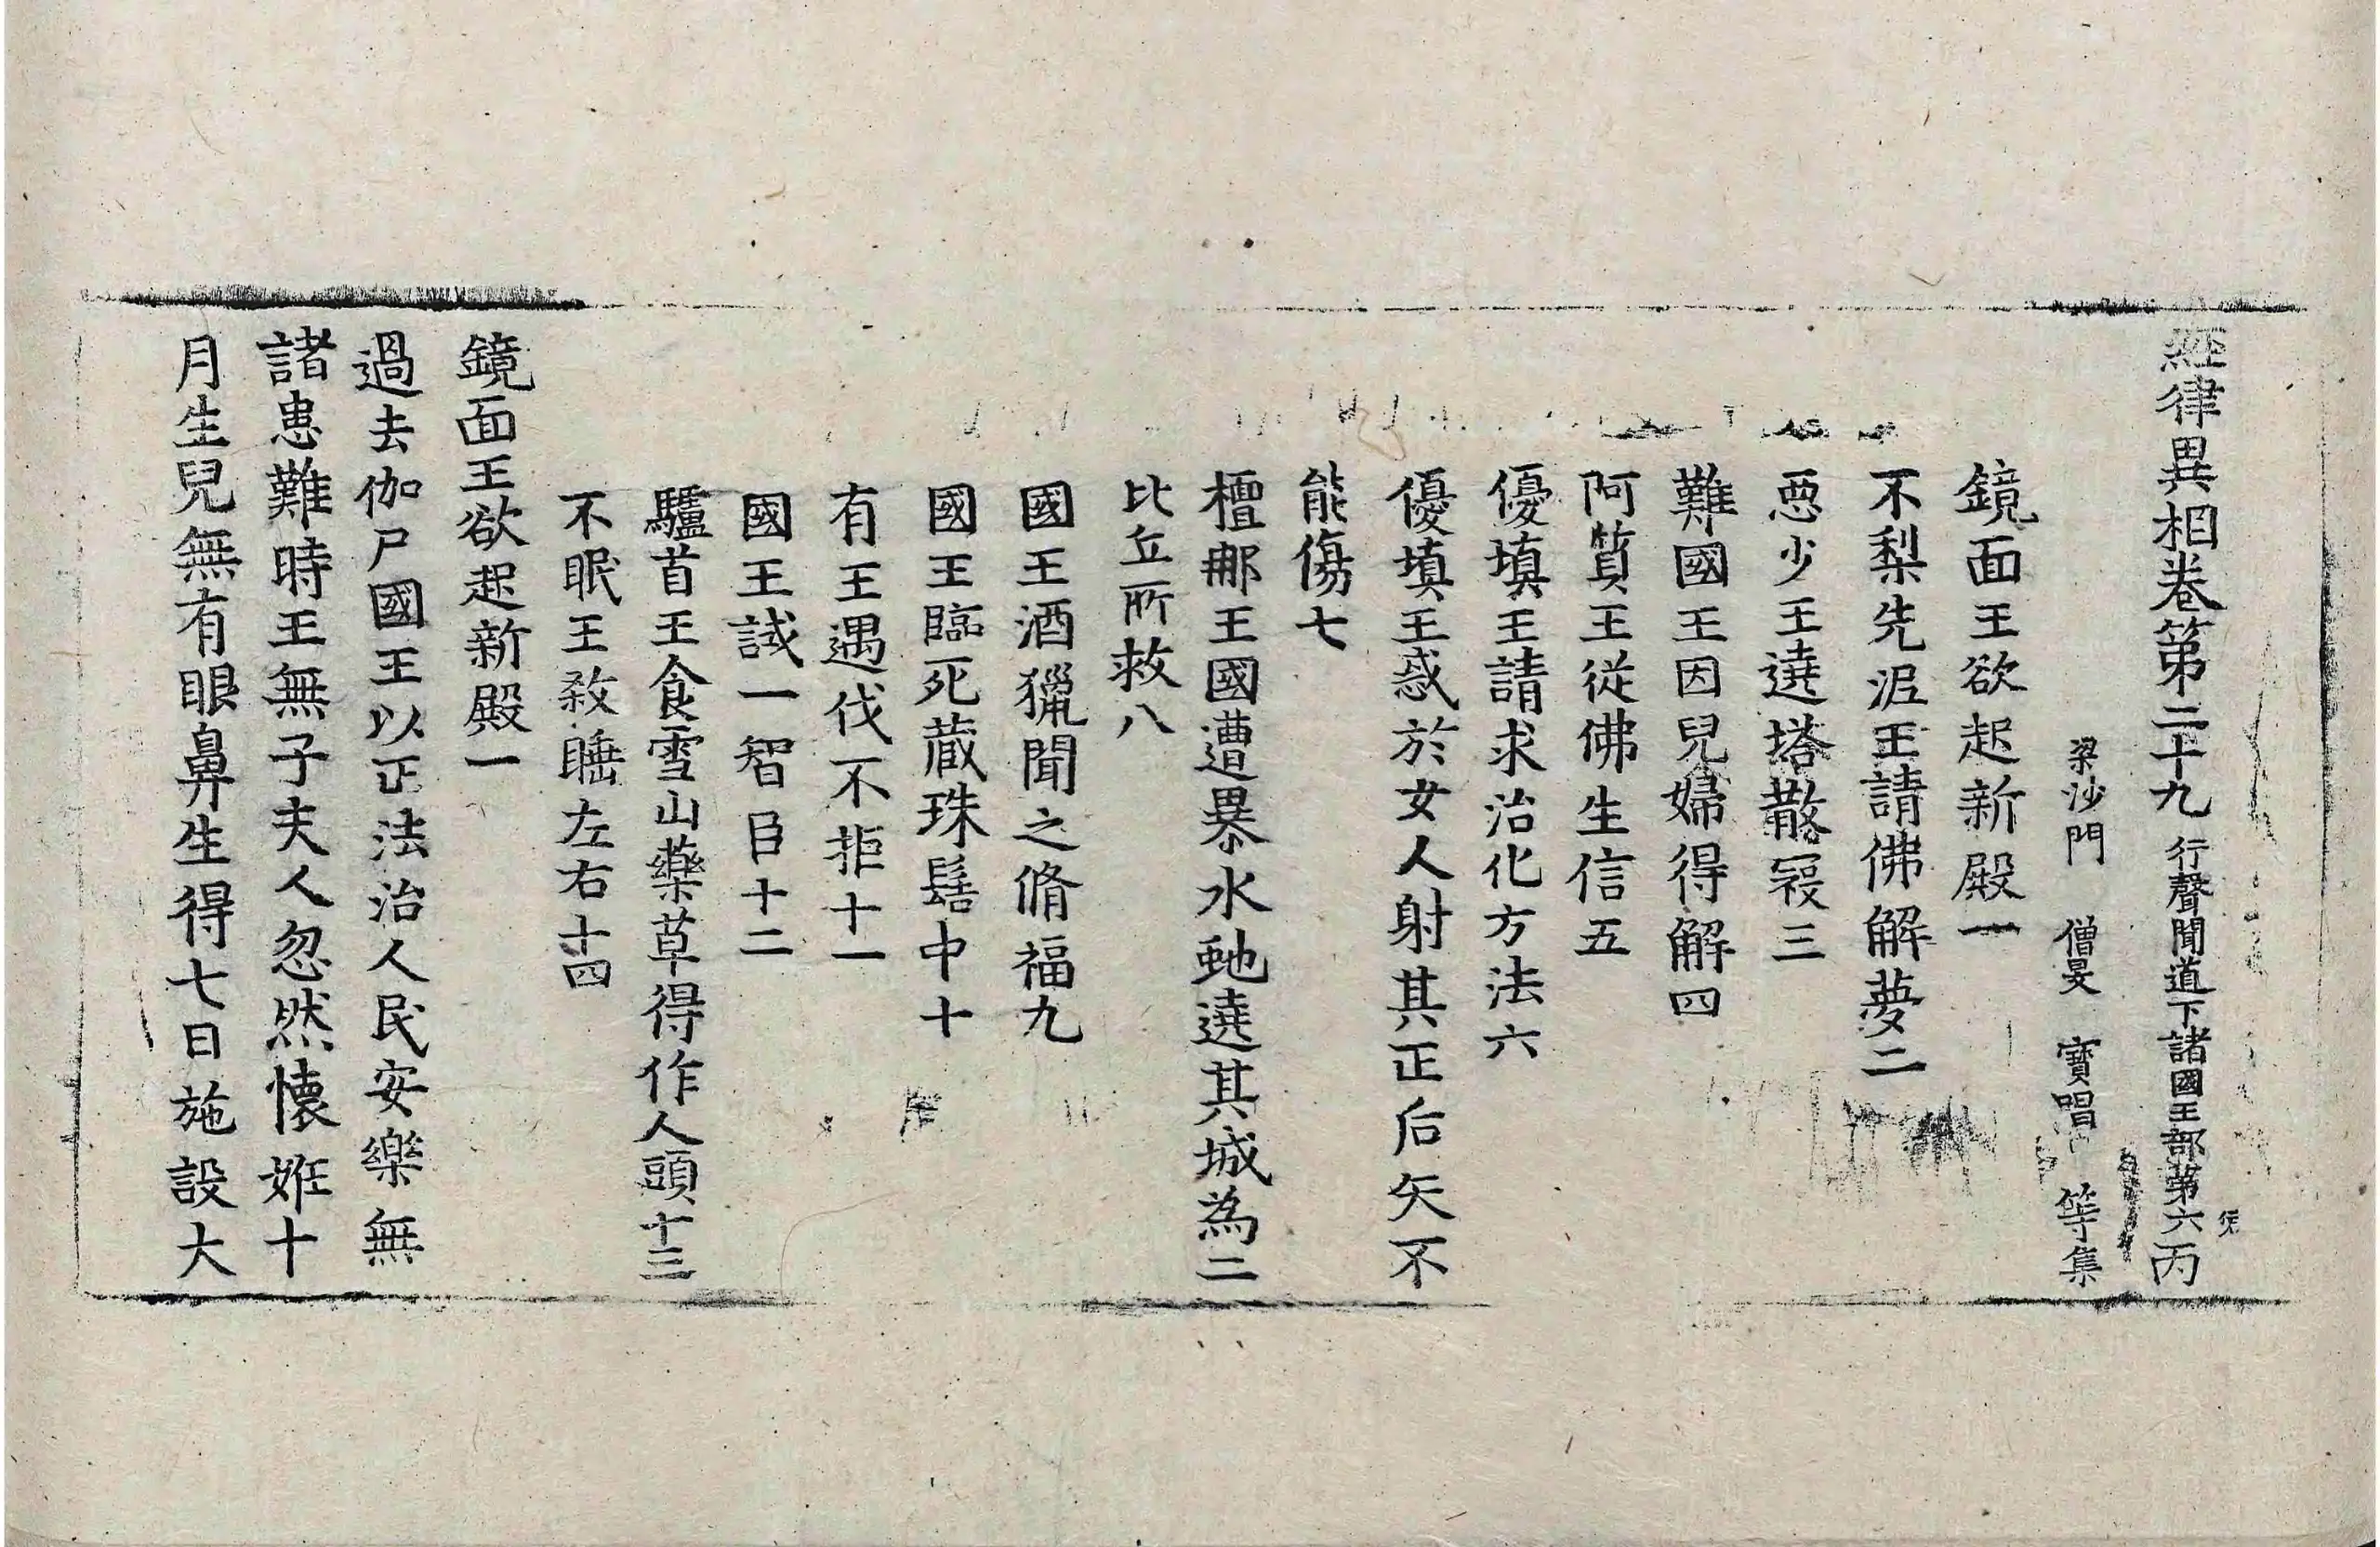 經律異相卷第二十九 行聲聞道下諸國王部第六 丙
梁沙門 僧旻 寶唱 等集
鏡面王欲起新殿一
不梨先泥王請佛解夢二
惡少王遶塔散寇三
難國王因兒婦得解四
阿質王從佛生信五
優填王請求治化方法六
優填王惑於女人射其正后矢不
能傷七
檀那王國遭暴水虵遶其城為二
比丘所救八
國王酒獵聞之脩福九
國王臨死藏珠髻中十
有王遇伐不拒十一
國王試一智臣十二
驢首王食雪山藥草得作人頭十三
不眠王殺睡左右十四
鏡面王欲起新殿一
過去伽尸國王以正法治人民安樂無
諸患難時王無子夫人忽然懷姙十
月生兒無有眼鼻生得七日施設大